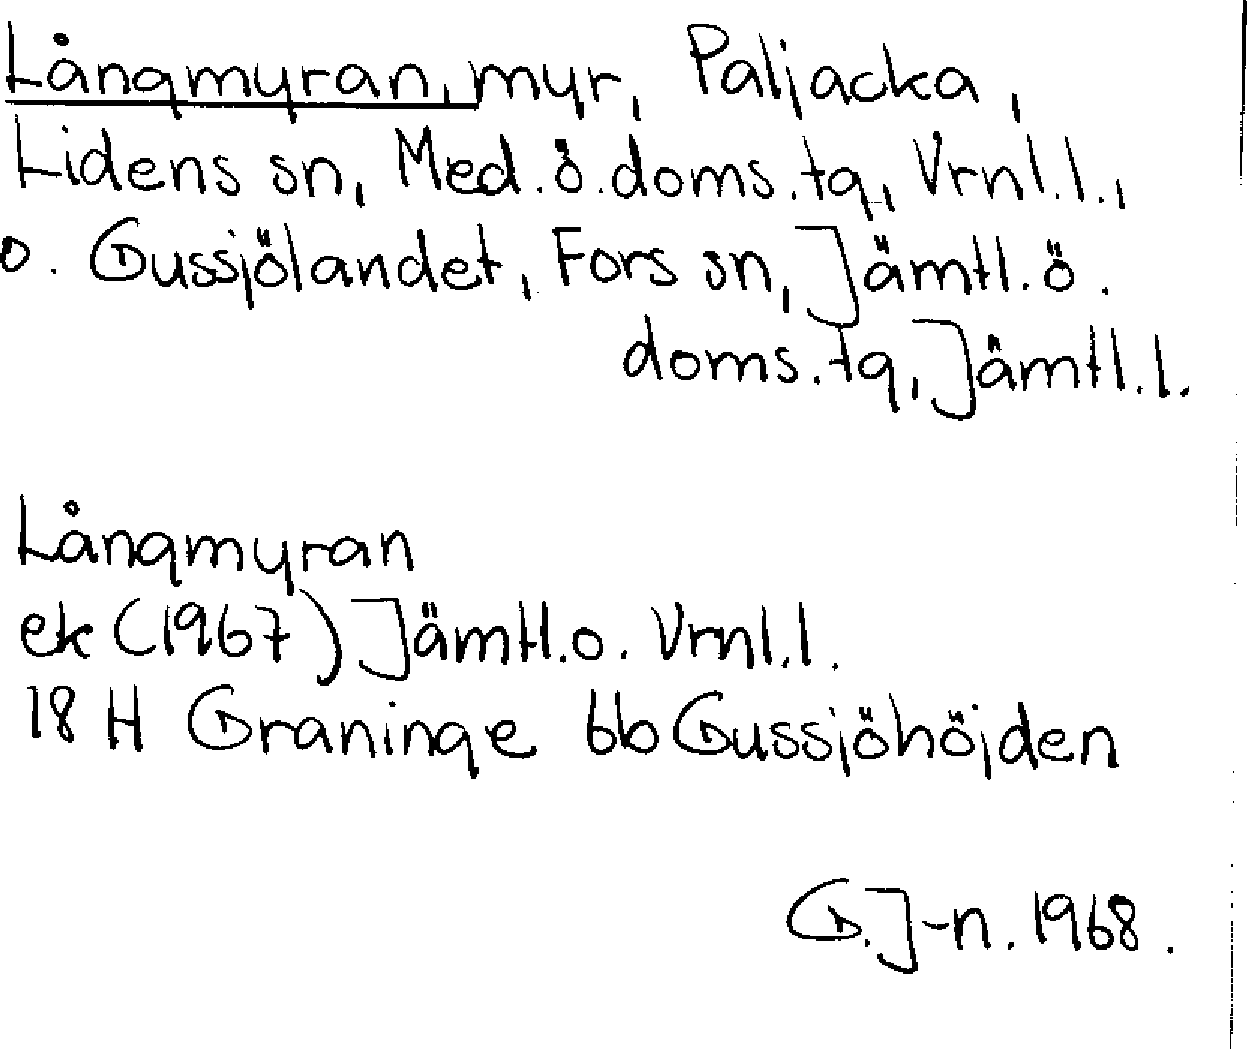 Långmyran, myr, Paljacka,
Lidens sn, Med. ö. doms. tg, Vrnl. l.,
o. Gussjölandet, Fors sn, Jämtl. ö.
doms. tg, Jämtl. l.
Långmyran
ek (1967) Jämtl. o. Vrnl. l.
18 H Graninge 6b Gussjöhöjden
G. J-n. 1968.